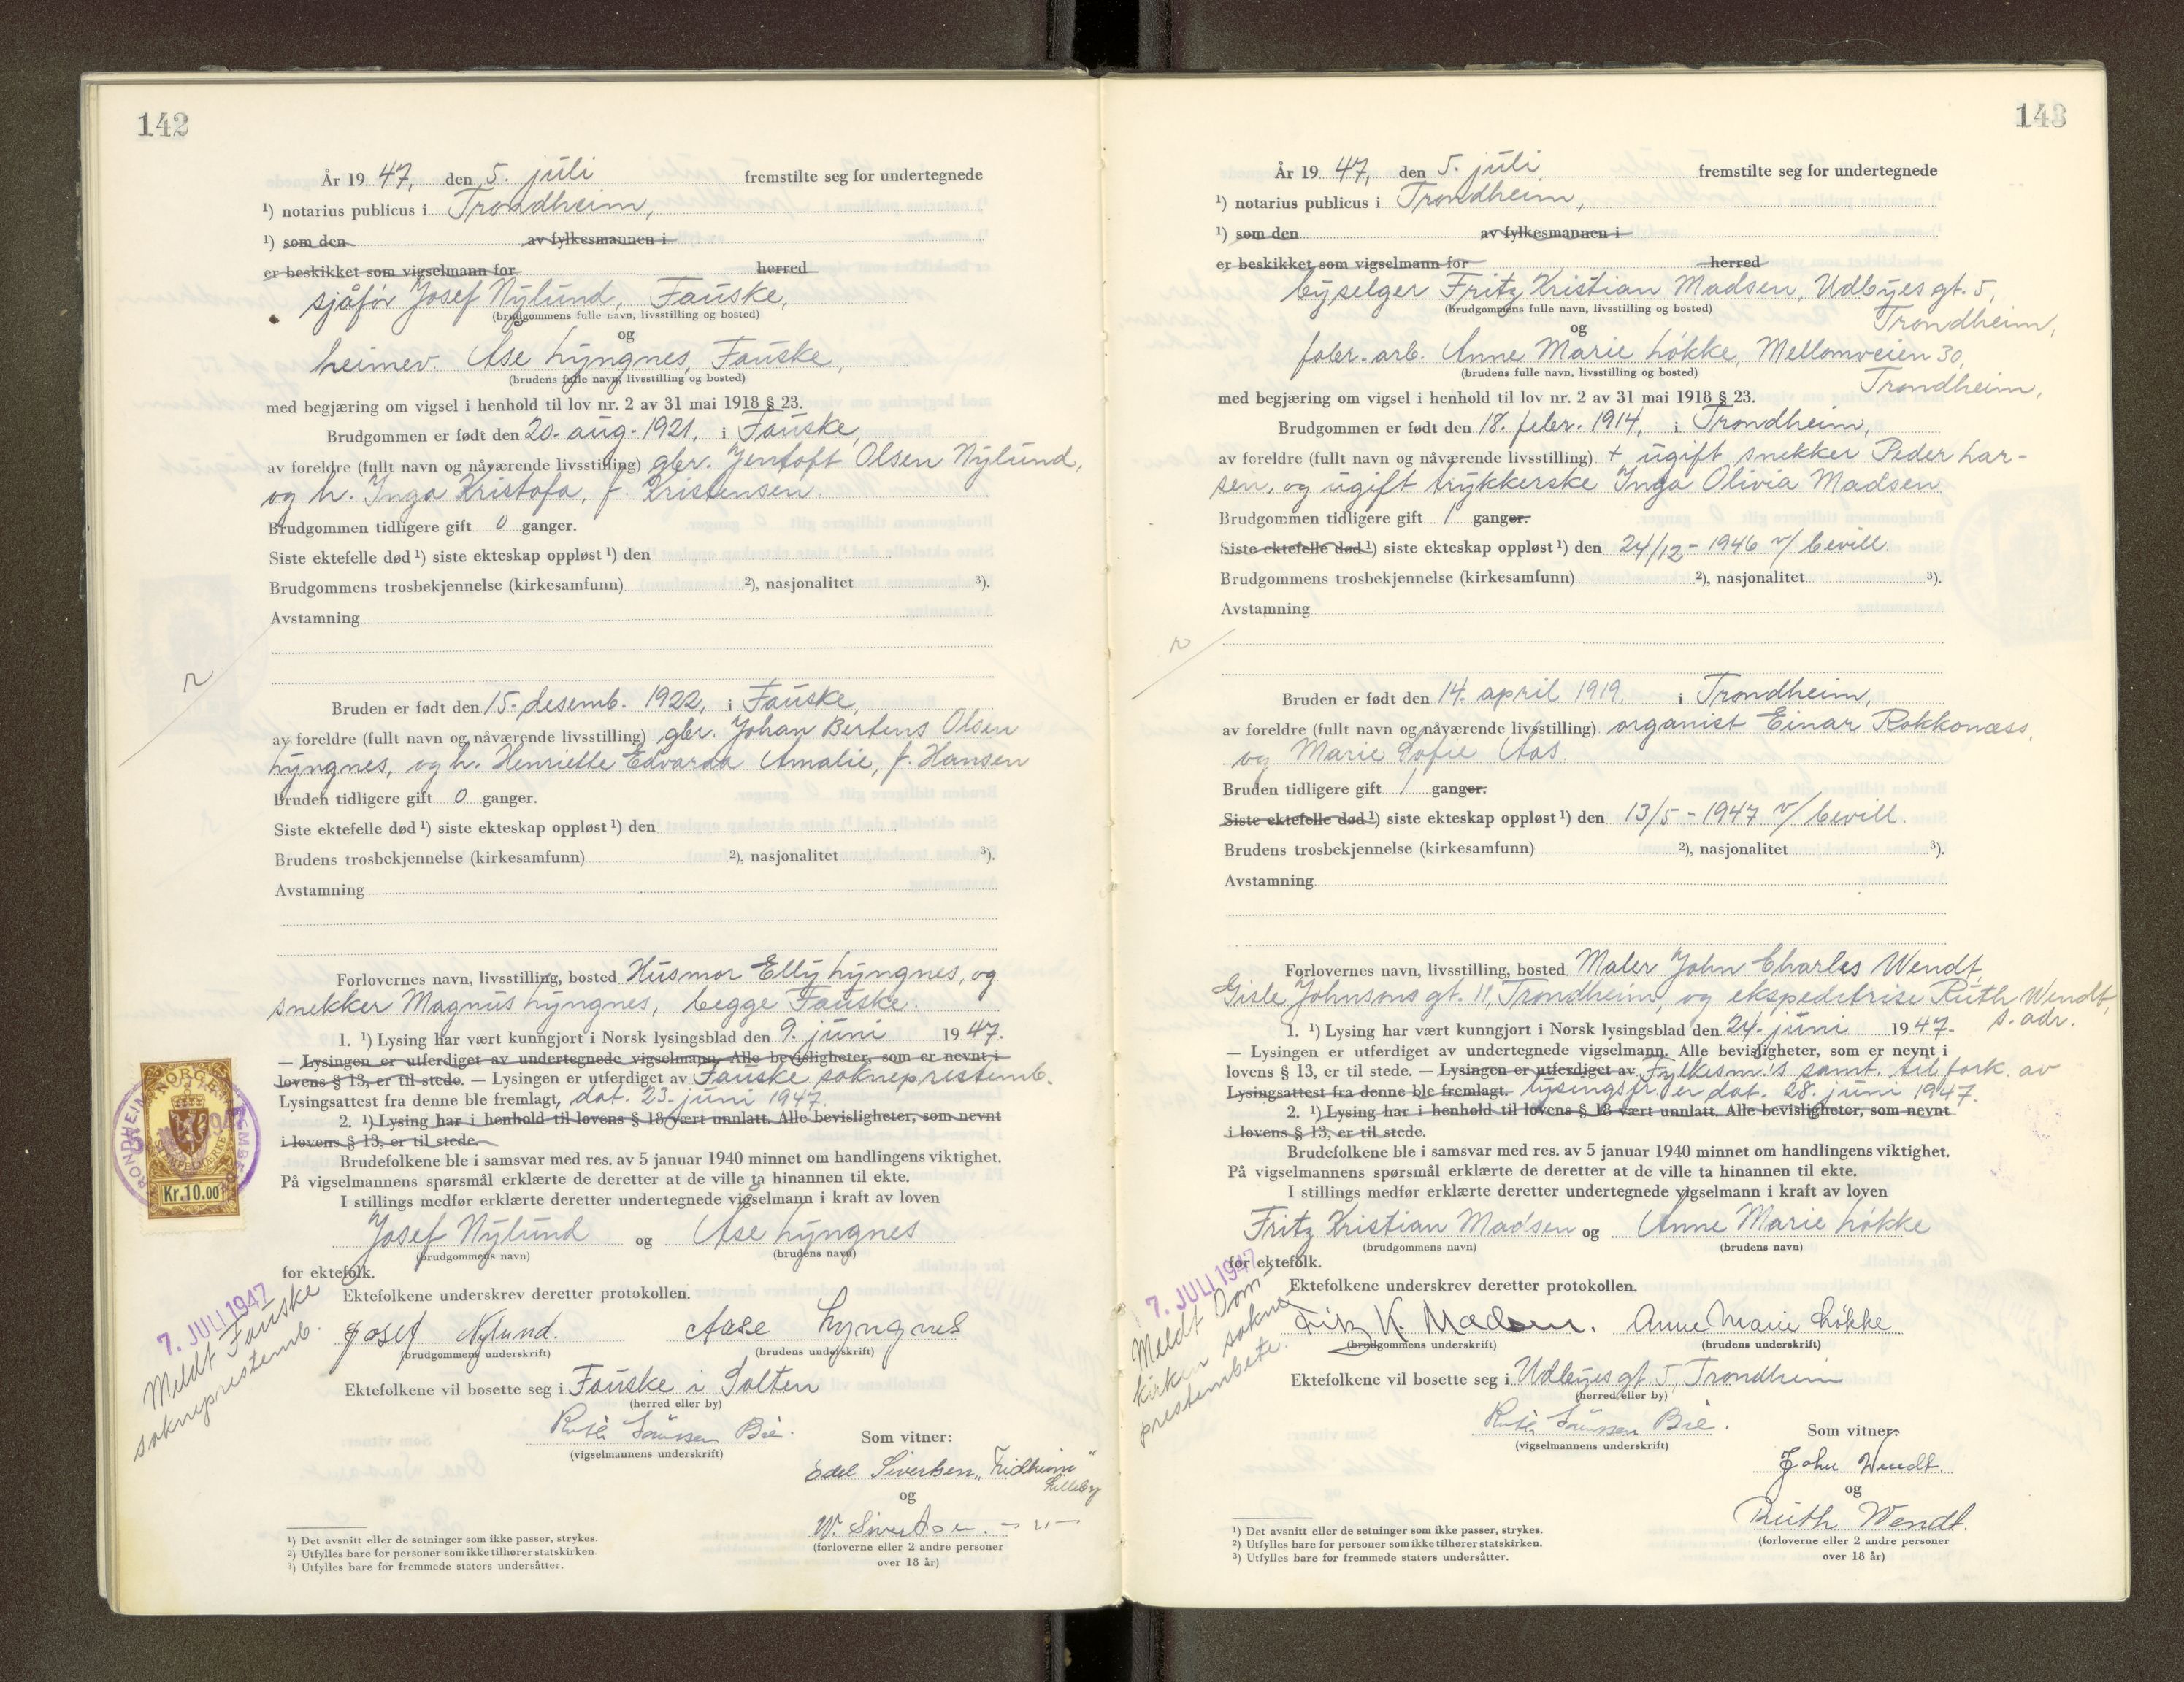 142
År 19 47, den 5. juli fremstilte seg for undertegnede
¹) notarius publicus i Trondheim,
¹) som den av fylkesmannen i
er beskikket som vigselmann for herred
sjåfør Josef Nylund, Fauske,
(brudgommens fulle navn, livsstilling og bosted)
og
heimev. Åse Lyngnes, Fauske,
(brudens fulle navn, livsstilling og bosted)
med begjæring om vigsel i henhold til lov nr. 2 av 31 mai 1918 § 23.
Brudgommen er født den 20. aug. 1921, i Fauske,
av foreldre (fullt navn og nåværende livsstilling) gbr. Jentoft Olsen Nylund,
og h. Inga Kristofa, f. Kristensen.
Brudgommen tidligere gift 0 ganger.
Siste ektefelle død ¹) siste ekteskap oppløst ¹) den
Brudgommens trosbekjennelse (kirkesamfunn) ²), nasjonalitet ³).
Avstamning
Bruden er født den 15. desemb. 1922, i Fauske,
av foreldre (fullt navn og nåværende livsstilling) gbr. Johan Bertens Olsen
Lyngnes, og h. Henriette Edvarda Amalie, f. Hansen
Bruden tidligere gift 0 ganger.
Siste ektefelle død ¹) siste ekteskap oppløst ¹) den
Brudens trosbekjennelse (kirkesamfunn) ²), nasjonalitet ³).
Avstamning
Forlovernes navn, livsstilling, bosted Husmor Elly Lyngnes, og
snekker Magnus Lyngnes, begge Fauske.
1. ¹) Lysing har vært kunngjort i Norsk lysingsblad den 9. juni 19 47.
— Lysingen er utferdiget av undertegnede vigselmann. Alle bevisligheter, som er nevnt i
lovens § 13, er til stede. — Lysingen er utferdiget av Fauske sokneprestemb.
Lysingsattest fra denne ble fremlagt, dat. 23. juni 1947.
2. ¹) Lysing har i henhold til lovens § 18 vært unnlatt. Alle bevisligheter, som nevnt
i lovens § 13, er til stede.
Brudefolkene ble i samsvar med res. av 5 januar 1940 minnet om handlingens viktighet.
På vigselmannens spørsmål erklærte de deretter at de ville ta hinannen til ekte.
I stillings medfør erklærte deretter undertegnede vigselmann i kraft av loven
Josef Nylund og Åse Lyngnes
(brudgommens navn) (brudens navn)
for ektefolk.
Ektefolkene underskrev deretter protokollen.
Josef Nylund. Aase Lyngnes
(brudgommens underskrift) (brudens underskrift)
Ektefolkene vil bosette seg i Fauske i Salten
(herred eller by)
Bie.
(vigselmannens underskrift)
Som vitner:
Edel Sivertsen, "Fridheim"
Lilleby
og
W. Sivertsen. — " —
(forloverne eller 2 andre personer
over 18 år)
¹) Det avsnitt eller de setninger som ikke passer, strykes.
²) Utfylles bare for personer som ikke tilhører statskirken.
³) Utfylles bare for fremmede staters undersåtter.
NORGE
Kr.10.00
7. JULI 1947
Meldt Fauske
sokneprestemb.
143
År 19 47, den 5. juli fremstilte seg for undertegnede
¹) notarius publicus i Trondheim,
¹) som den av fylkesmannen i
er beskikket som vigselmann for herred
byselger Fritz Kristian Madsen, Udbyesgt. 5,
Trondheim,
(brudgommens fulle navn, livsstilling og bosted)
og
fabr. arb. Anne Marie Løkke, Mellomveien 30,
Trondheim,
(brudens fulle navn, livsstilling og bosted)
med begjæring om vigsel i henhold til lov nr. 2 av 31 mai 1918 § 23.
Brudgommen er født den 18. febr. 1914, i Trondheim,
av foreldre (fullt navn og nåværende livsstilling) + ugift snekker Peder Lar-
sen, og ugift trykkerske Inga Olivia Madsen
Brudgommen tidligere gift 1 ganger.
Siste ektefelle død ¹) siste ekteskap oppløst ¹) den 24/12 - 1946 v/ bevill.
Brudgommens trosbekjennelse (kirkesamfunn) ²), nasjonalitet ³).
Avstamning
Bruden er født den 14. april 1919. i Trondheim,
av foreldre (fullt navn og nåværende livsstilling) organist Einar Rokkonæss,
og Marie Sofie Aas.
Bruden tidligere gift 1 ganger.
Siste ektefelle død ¹) siste ekteskap oppløst ¹) den 13/5 - 1947 v/ bevill.
Brudens trosbekjennelse (kirkesamfunn) ²), nasjonalitet ³).
Avstamning
Forlovernes navn, livsstilling, bosted Maler John Charles Wendt,
Gisle Johnsons gt. 11, Trondheim, og ekspeditrise Ruth Wendt,
s. adr.
1. ¹) Lysing har vært kunngjort i Norsk lysingsblad den 24. juni 19 47.
— Lysingen er utferdiget av undertegnede vigselmann. Alle bevisligheter, som er nevnt i
lovens § 13, er til stede. — Lysingen er utferdiget av Fylkesm.'s samt. til fork. av
Lysingsattest fra denne ble fremlagt. lysingsfr. er dat. 28. juni 1947.
2. ¹) Lysing har i henhold til lovens § 18 vært unnlatt. Alle bevisligheter, som nevnt
i lovens § 13, er til stede.
Brudefolkene ble i samsvar med res. av 5 januar 1940 minnet om handlingens viktighet.
På vigselmannens spørsmål erklærte de deretter at de ville ta hinannen til ekte.
I stillings medfør erklærte deretter undertegnede vigselmann i kraft av loven
Fritz Kristian Madsen og Anne Marie Løkke
(brudgommens navn) (brudens navn)
for ektefolk.
Ektefolkene underskrev deretter protokollen.
Fritz K. Madsen. Anne Marie Løkke
(brudgommens underskrift) (brudens underskrift)
Ektefolkene vil bosette seg i Udbyesgt. 5, Trondheim
(herred eller by)
Bie.
(vigselmannens underskrift)
Som vitner:
John Wendt.
og
Ruth Wendt.
(forloverne eller 2 andre personer
over 18 år)
¹) Det avsnitt eller de setninger som ikke passer, strykes.
²) Utfylles bare for personer som ikke tilhører statskirken.
³) Utfylles bare for fremmede staters undersåtter.
7. JULI 1947
Meldt Dom-
kirken sokne-
prestembete.